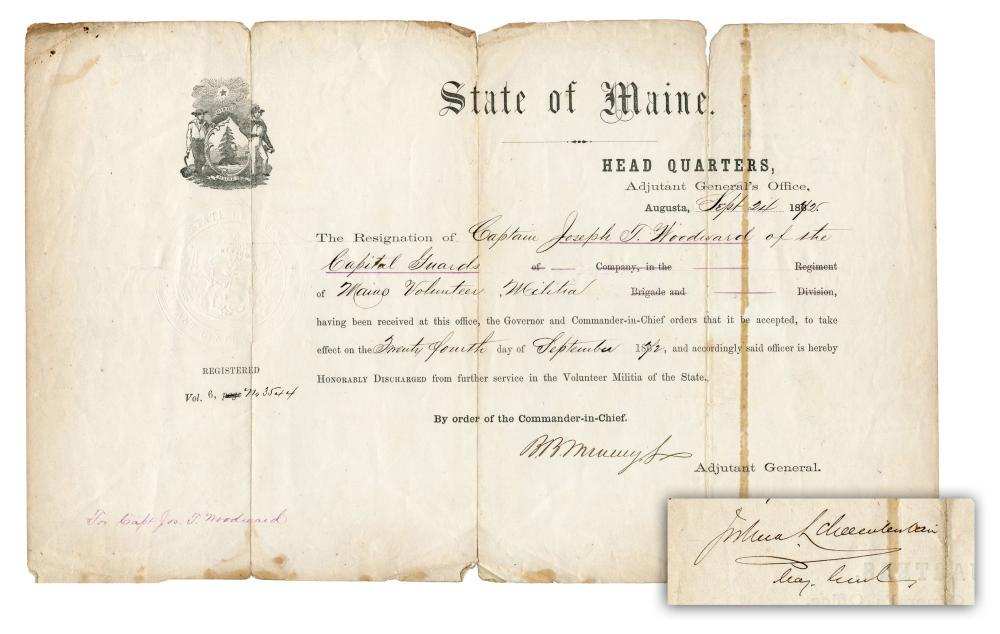 State of Maine.
HEAD QUARTERS,
Adjutant General's Office,
Augusta, Sept 24 1872.
The Resignation of Captain Joseph T. Woodward of the
Capital Guards of — Company, in the — Regiment
of Maine Volunteer Militia Brigade and — Division,
having been received at this office, the Governor and Commander-in-Chief orders that it be accepted, to take
effect on the Twenty fourth day of September 1872, and accordingly said officer is hereby
HONORABLY DISCHARGED from further service in the Volunteer Militia of the State.
REGISTERED
Vol. 6, page No 3544
By order of the Commander-in-Chief.
Adjutant General.
To: Capt Jos. T. Woodward
Joshua L Chamberlain
Maj. Genl.